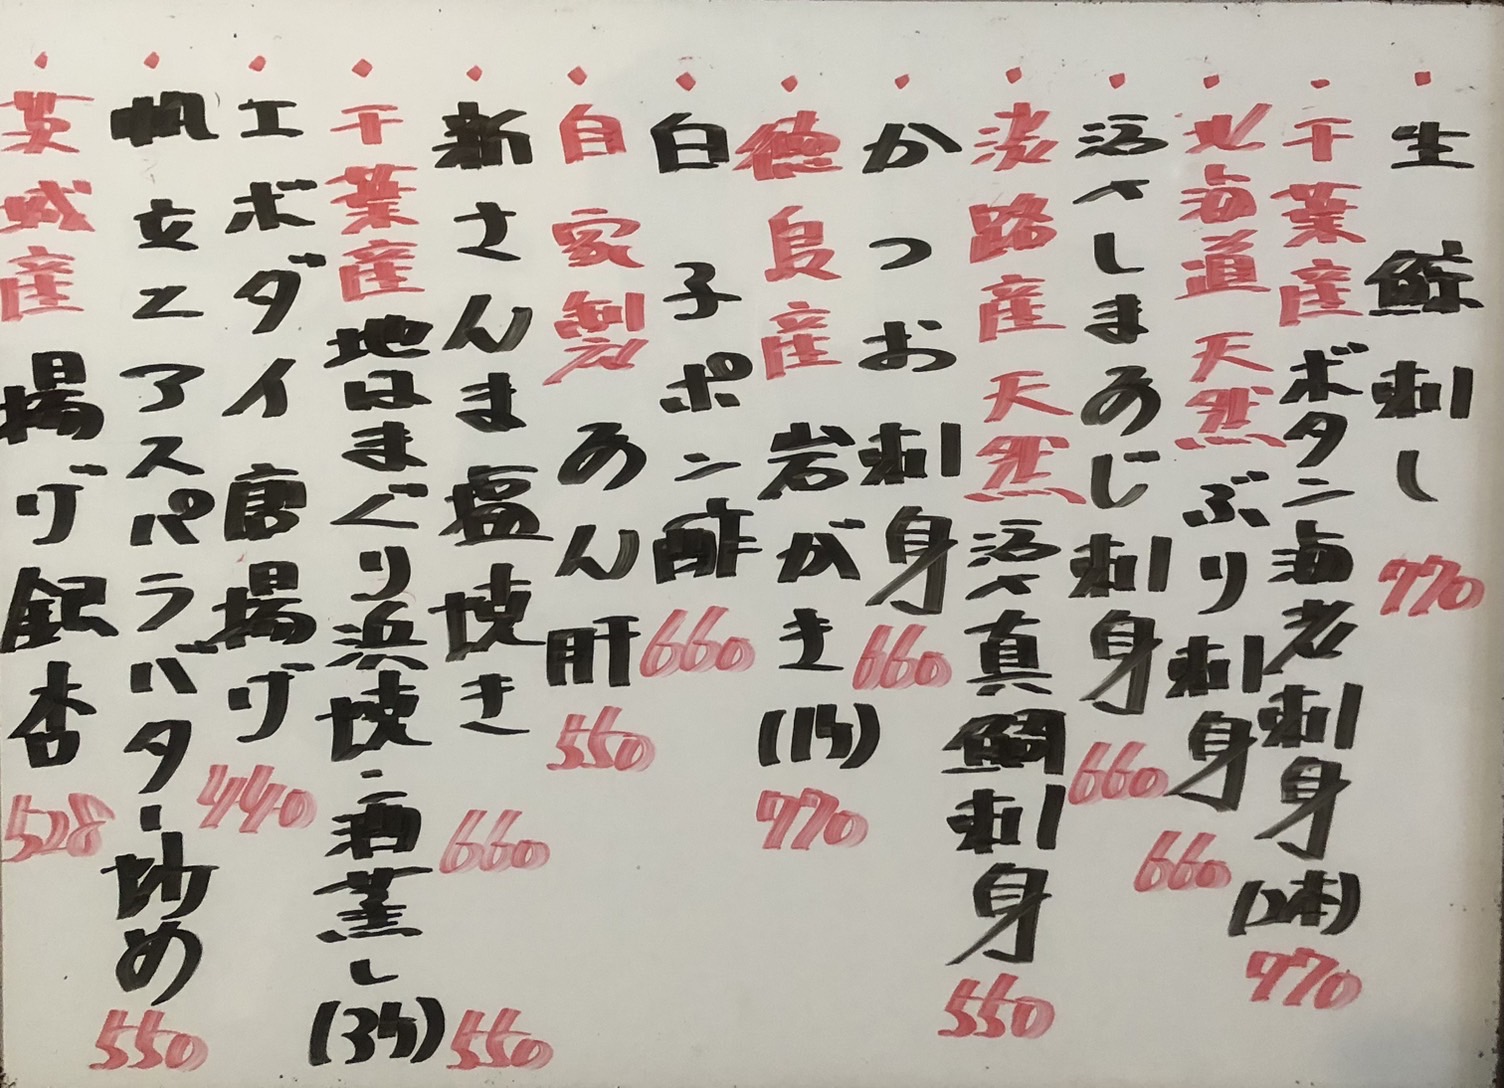 ・生鯨刺し 770
・千葉産 ボタン海老刺身(2本) 770
・北海道 天然 ぶり刺身 660
・活〆しまあじ刺身 660
・淡路産 天然 活〆真鯛刺身 550
・かつお刺身 660
・徳島産 岩がき(1ケ) 770
・白子ポン酢 660
・自家製 あん肝 550
・新さんま塩焼き 660
・千葉産 地はまぐり浜焼・酒蒸し(3ケ) 550
・エボダイ唐揚げ 440
・帆立とアスパラバター炒め 550
・茨城産 揚げ銀杏 528